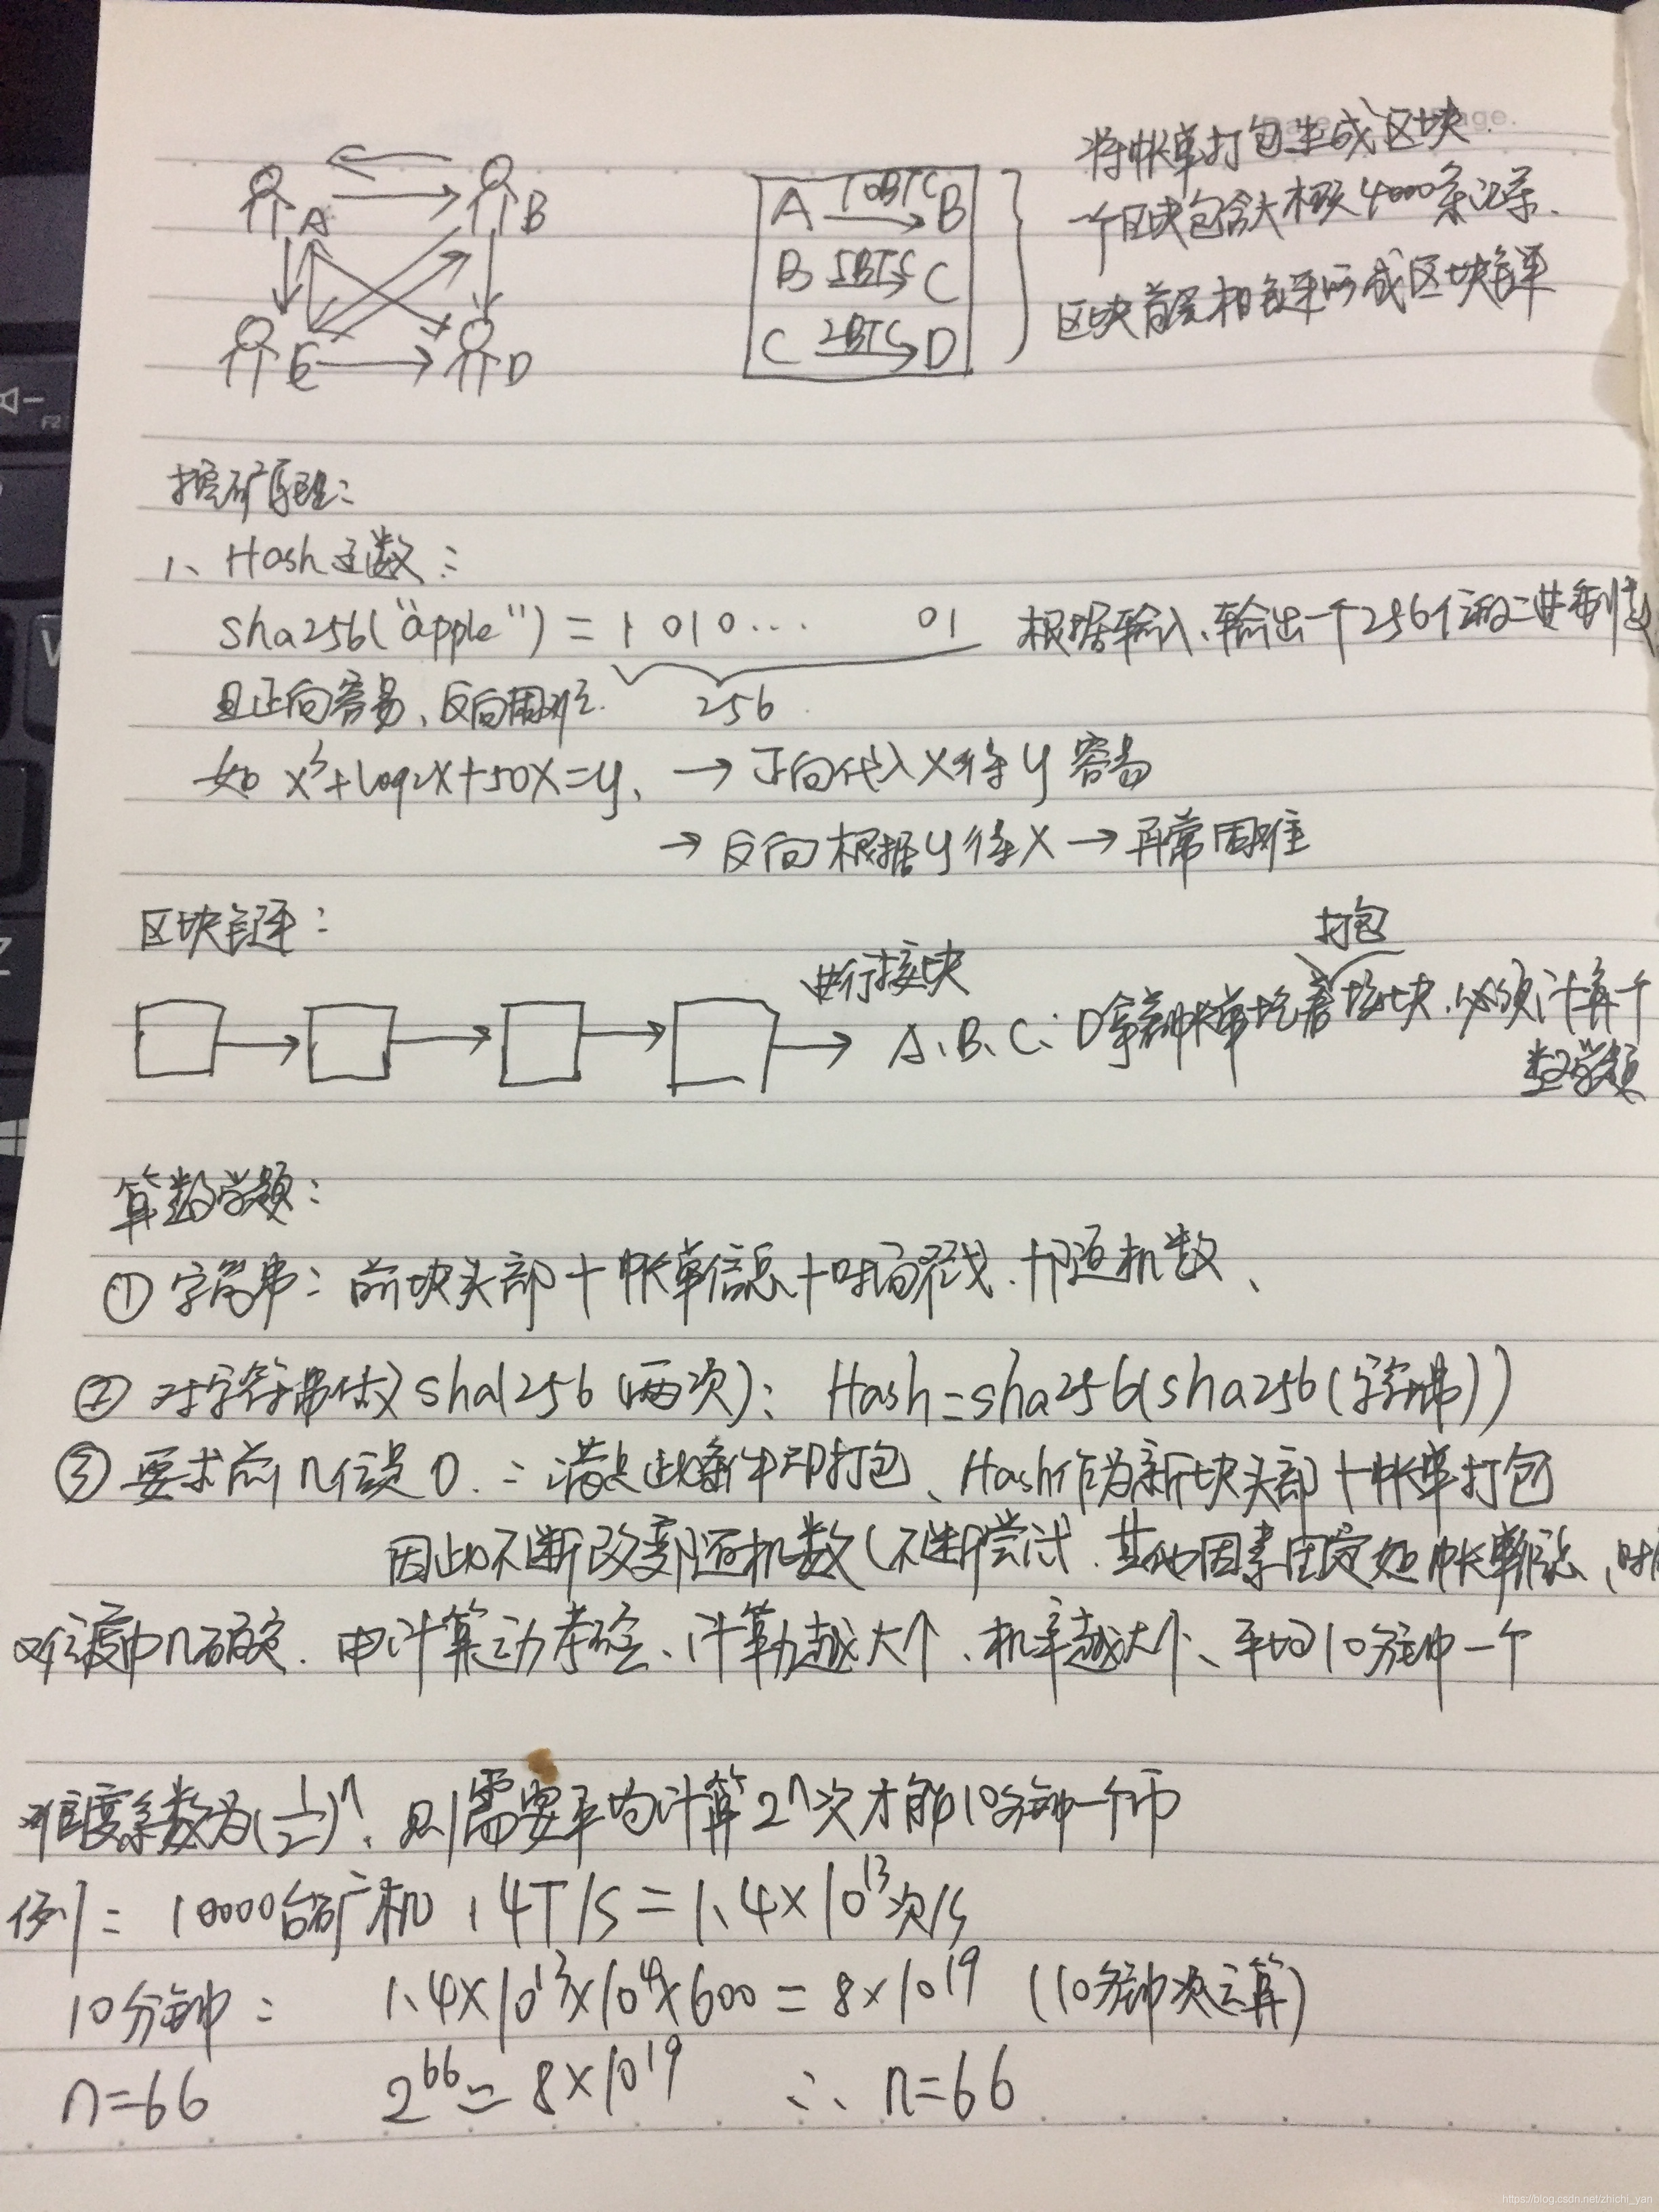 将帐单打包生成区块.
一个区块包含大概 4000条记录.
区块首尾相链形成区块链
A 10BTC B
B 5BTC C
C 2BTC D
A
B
C
D
挖矿原理:
1、Hash函数:
sha256("apple") = 1 010... 01 根据输入、输出一个256位的二进制数
256
且正向容易、反向困难.
如 x³+log2x+50x=y、 → 正向代入X得y 容易
→ 反向根据y得X → 异常困难
区块链:
打包
进行接块
→ A、B、C、D拿着帐单挖着接块、必须计算个
数学题
算数学题:
① 字符串: 前块头部 + 帐单信息 + 时间戳. + 随机数、
② 对字符串做 sha256 (两次): Hash=sha256(sha256(字符串))
③ 要求前n位是0. : 满足此条件即打包、Hash作为新块头部 + 帐单打包
因此不断改变随机数 (不断尝试. 其他因素固定如帐单信息、时
难度由n确定. 由计算力考验、计算力越大↑、机率越大↑、平均10分钟一个
难度系数为(1/2)ⁿ、则需要平均计算2ⁿ次才能10分钟一个币
例: 10000台矿机 14T/S = 1.4×10¹³次/s
10分钟: 1.4×10¹³×10⁴×600 = 8×10¹⁹ (10分钟次运算)
n=66 2⁶⁶ = 8×10¹⁹ ∴ n=66
https://blog.csdn.net/zhichi_yan